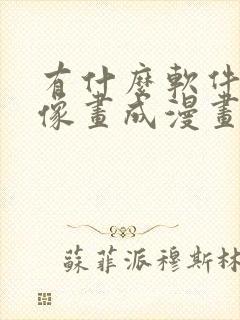 有什麼軟件
像畫成漫畫
蘇菲派穆斯林